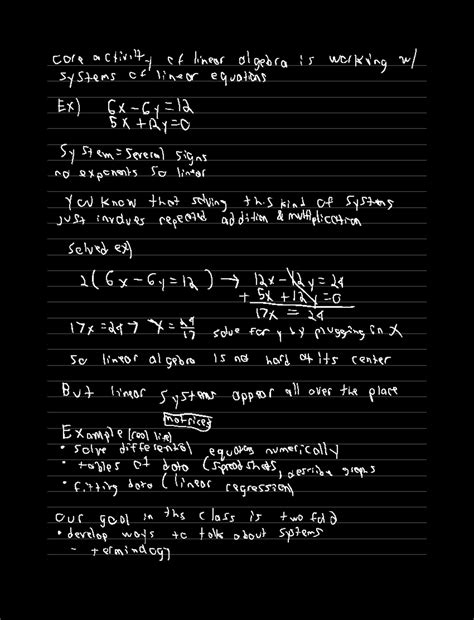 core activity of linear algebra is working w/
systems of linear equations
Ex) 6x-6y=12
5x+12y=0
System = Several signs
no exponents so linear
You know that solving this kind of systems
just involves repeated addition & multiplication
Solved ex)
2(6x-6y=12) → 12x-12y=24
+ 5x+12y=0
17x = 24
17x=24 → x=24/17 solve for y by plugging in x
So linear algebra is not hard at its center
But linear systems appear all over the place
matrices
Example [real life]
• solve differential equations numerically
• tables of data (spreadsheets, describe graphs
• fitting data (linear regression)
our goal in this class is two fold
• develop ways to talk about systems
- terminology